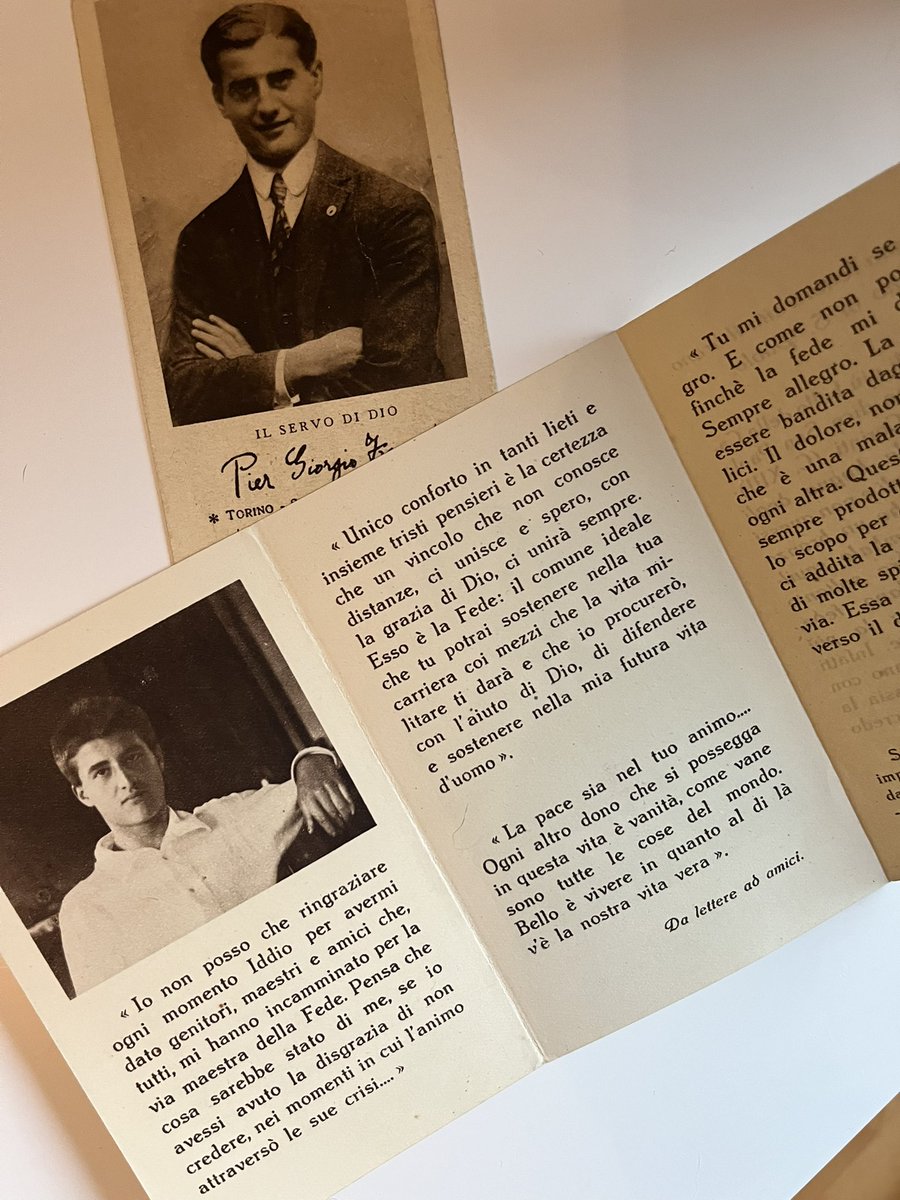 IL SERVO DI DIO
Pier Giorgio
* TORINO -
« Io non posso che ringraziare
ogni momento Iddio per avermi
dato genitori, maestri e amici che,
tutti, mi hanno incamminato per la
via maestra della Fede. Pensa che
cosa sarebbe stato di me, se io
avessi avuto la disgrazia di non
credere, nei momenti in cui l'animo
attraversò le sue crisi.... »
« Unico conforto in tanti lieti e
insieme tristi pensieri è la certezza
che un vincolo che non conosce
distanze, ci unisce e spero, con
la grazia di Dio, ci unirà sempre.
Esso è la Fede: il comune ideale
che tu potrai sostenere nella tua
carriera coi mezzi che la vita mi-
litare ti darà e che io procurerò,
con l'aiuto di Dio, di difendere
e sostenere nella mia futura vita
d'uomo ».
« La pace sia nel tuo animo....
Ogni altro dono che si possegga
in questa vita è vanità, come vane
sono tutte le cose del mondo.
Bello è vivere in quanto al di là
v'è la nostra vita vera ».
Da lettere ad amici.
« Tu mi domandi se
gro. E come non po
finchè la fede mi d
Sempre allegro. La
essere bandita dag
lici. Il dolore, non
che è una mala
ogni altra. Ques
sempre prodott
lo scopo per
ci addita la
di molte spi
via. Essa
verso il d
imp
da